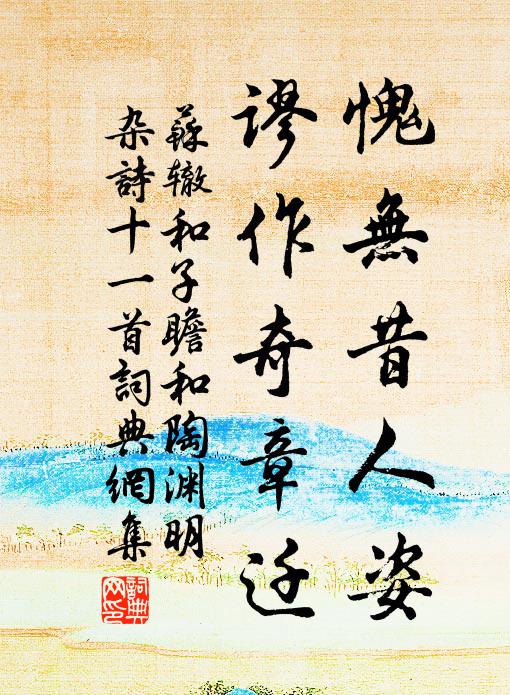 愧無昔人姿
謬作奇章迂
蘇辙和子瞻和陶渊明
杂詩十一首詞典網集